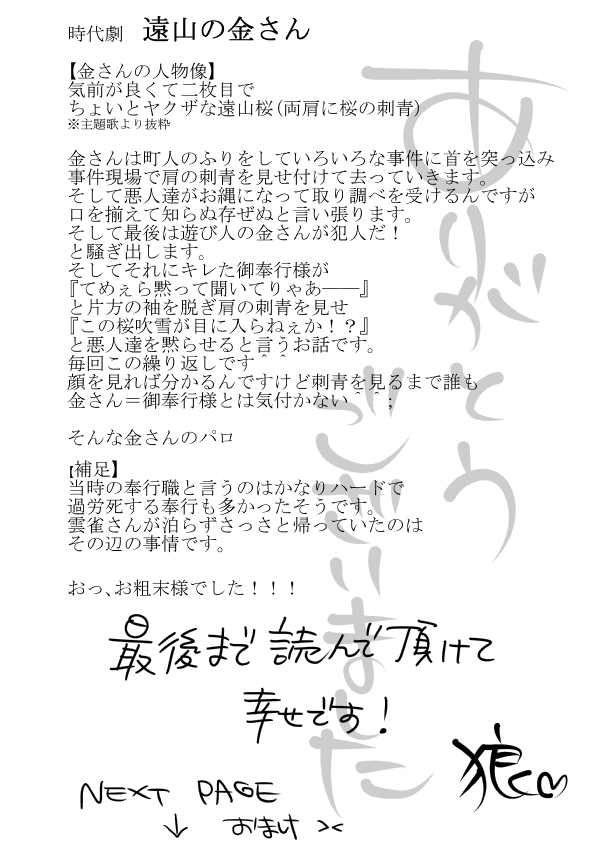 時代劇　遠山の金さん
【金さんの人物像】
気前が良くて二枚目で
ちょいとヤクザな遠山桜（両肩に桜の刺青）
※主題歌より抜粋
金さんは町人のふりをしていろいろな事件に首を突っ込み
事件現場で肩の刺青を見せ付けて去っていきます。
そして悪人達がお縄になって取り調べを受けるんですが
口を揃えて知らぬ存ぜぬと言い張ります。
そして最後は遊び人の金さんが犯人だ！
と騒ぎ出します。
そしてそれにキレた御奉行様が
『てめぇら黙って聞いてりゃあ――』
と片方の袖を脱ぎ肩の刺青を見せ
『この桜吹雪が目に入らねぇか！？』
と悪人達を黙らせると言うお話です。
毎回この繰り返しです＾＾
顔を見れば分かるんですけど刺青を見るまで誰も
金さん＝御奉行様とは気付かない＾＾；
そんな金さんのパロ
【補足】
当時の奉行職と言うのはかなりハードで
過労死する奉行も多かったそうです。
雲雀さんが泊らずさっさと帰っていたのは
その辺の事情です。
おっ、お粗末様でした！！！
ありがとう
ございました
最後まで読んで頂けて
幸せです！
狼
NEXT PAGE
↓ おまけ ><